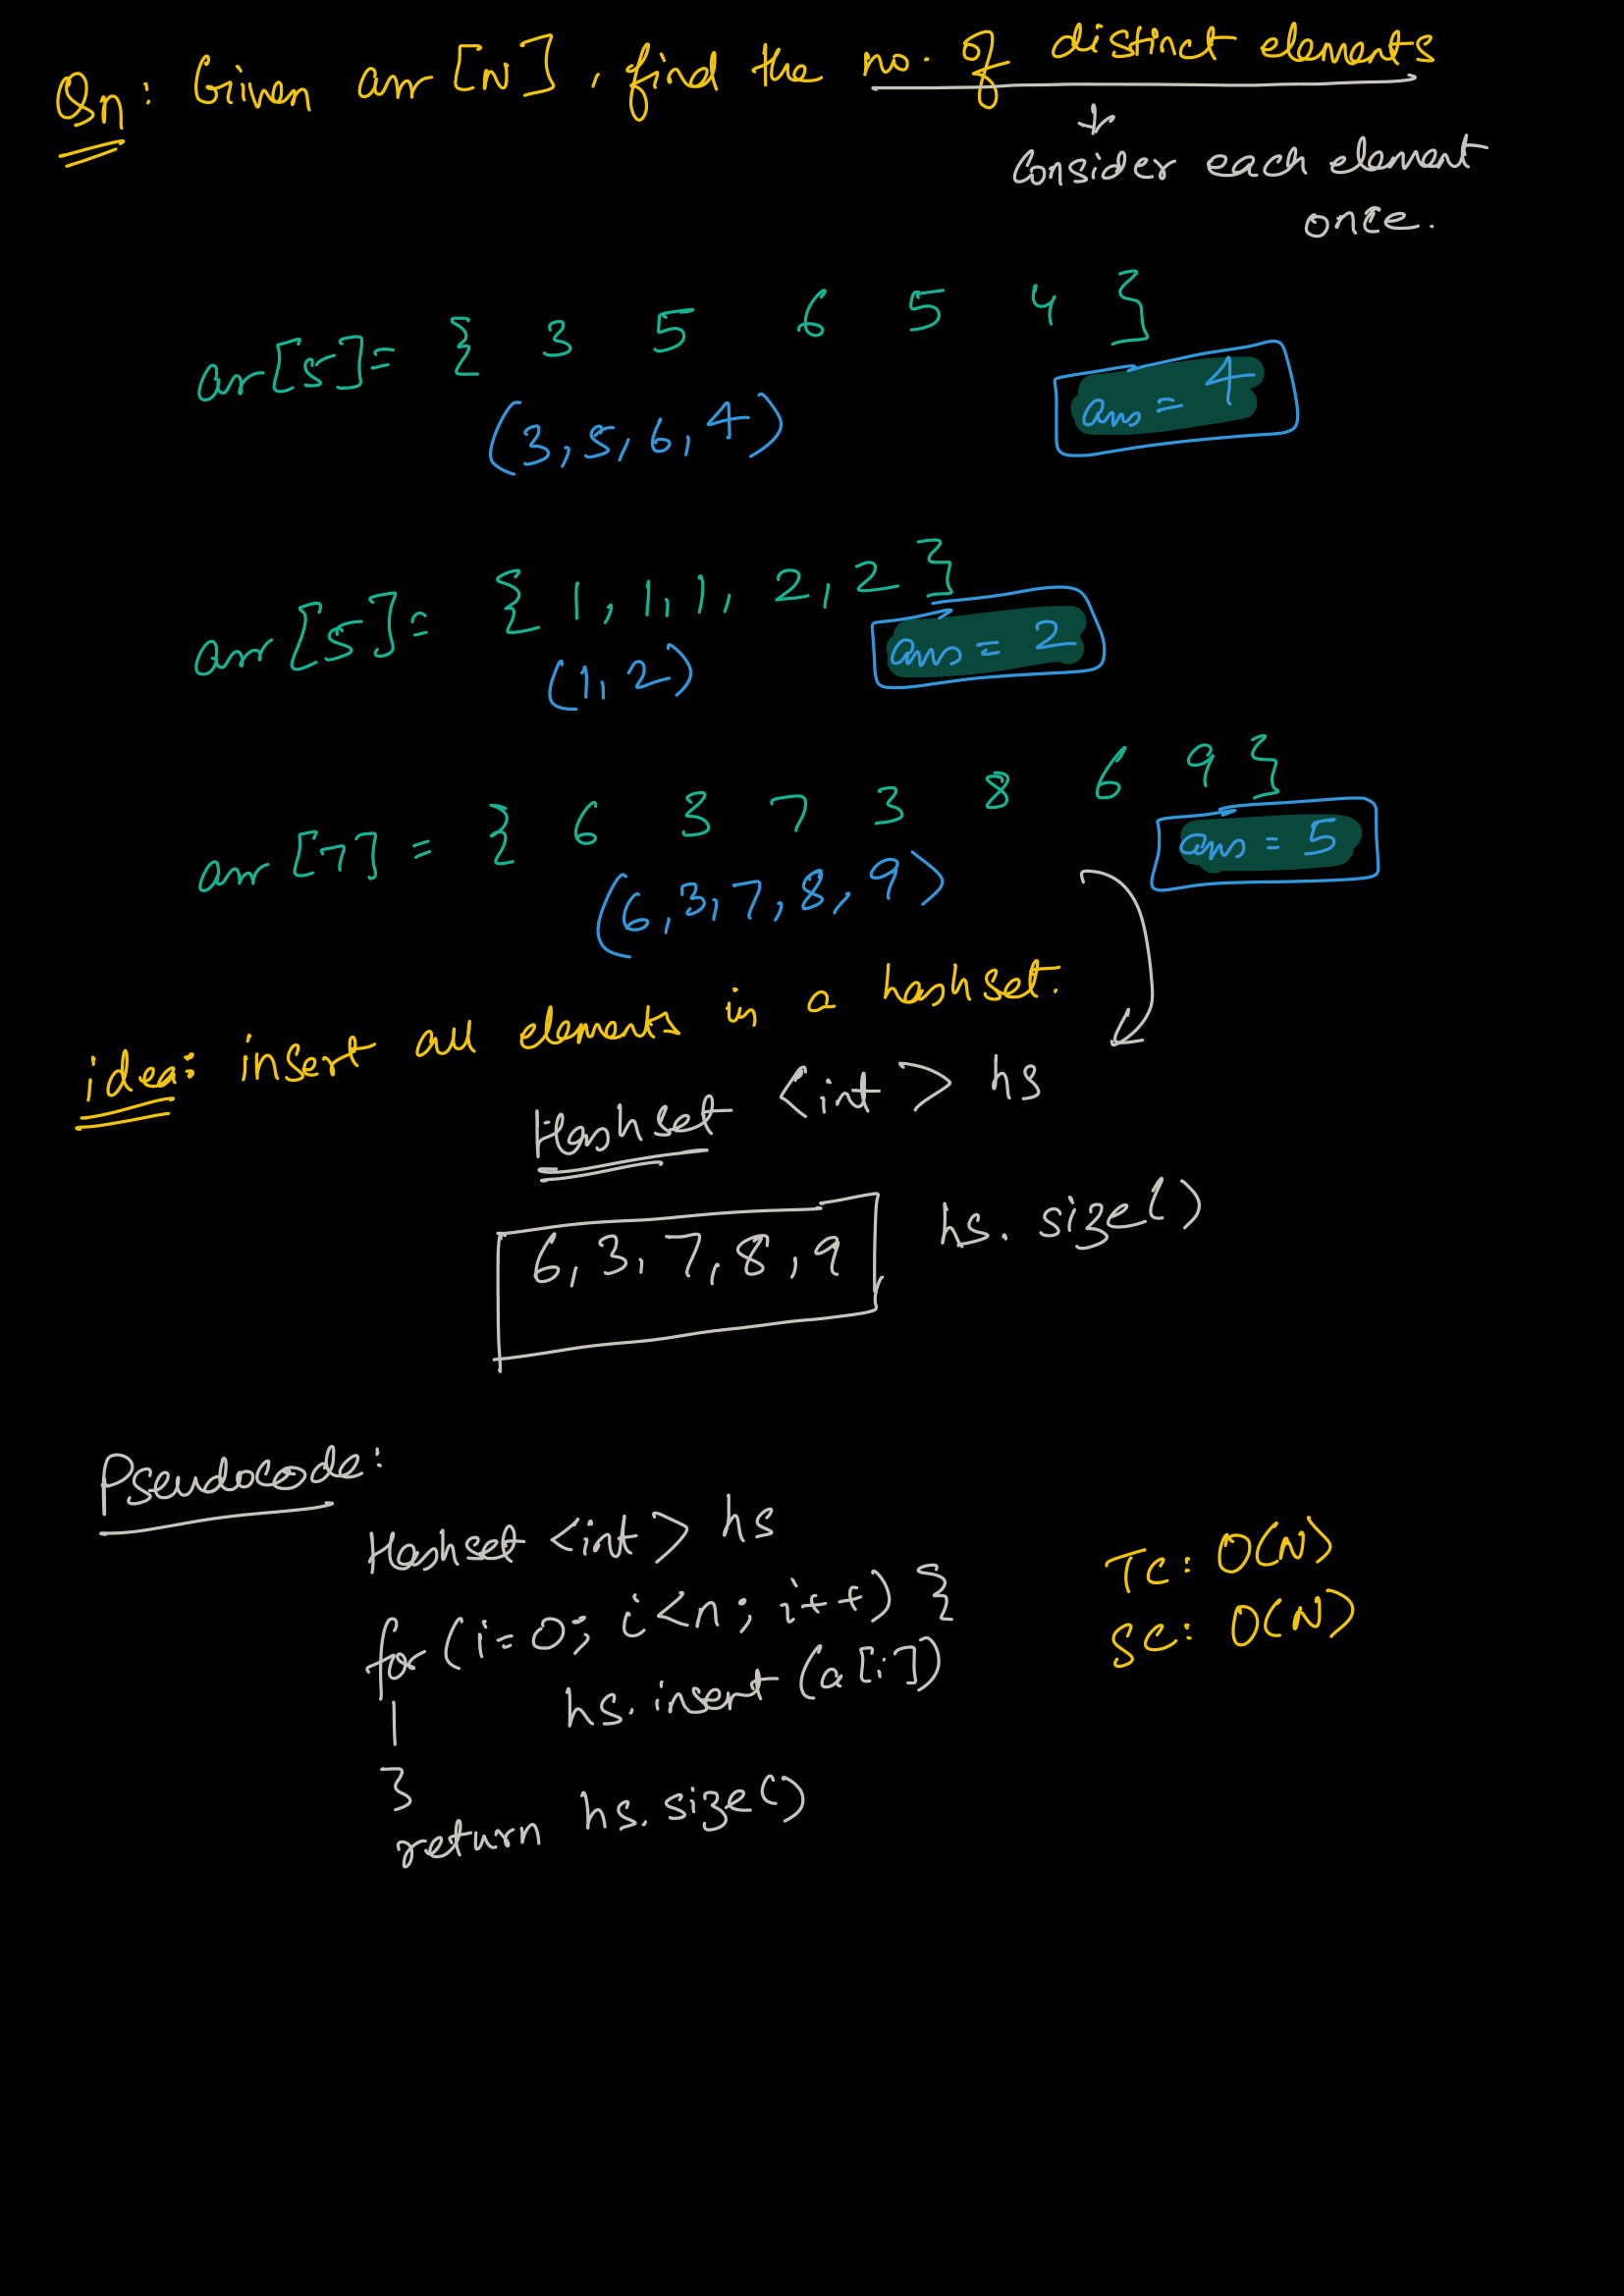 Qn: Given arr [N], find the no. of distinct elements
Consider each element
once.
arr[5]= { 3 5 6 5 4 }
(3,5,6,4)
ans = 4
arr[5]= { 1, 1, 1, 2, 2 }
(1,2)
ans = 2
arr [7] = { 6 3 7 3 8 6 9 }
(6,3,7,8,9)
ans = 5
idea: insert all elements in a hashset.
Hashset <int> hs
6, 3, 7, 8, 9
hs. size()
Pseudocode:
Hashset <int> hs
for (i=0; i<n; i++) {
hs. insert (a[i])
}
return hs. size()
TC: O(N)
SC: O(N)